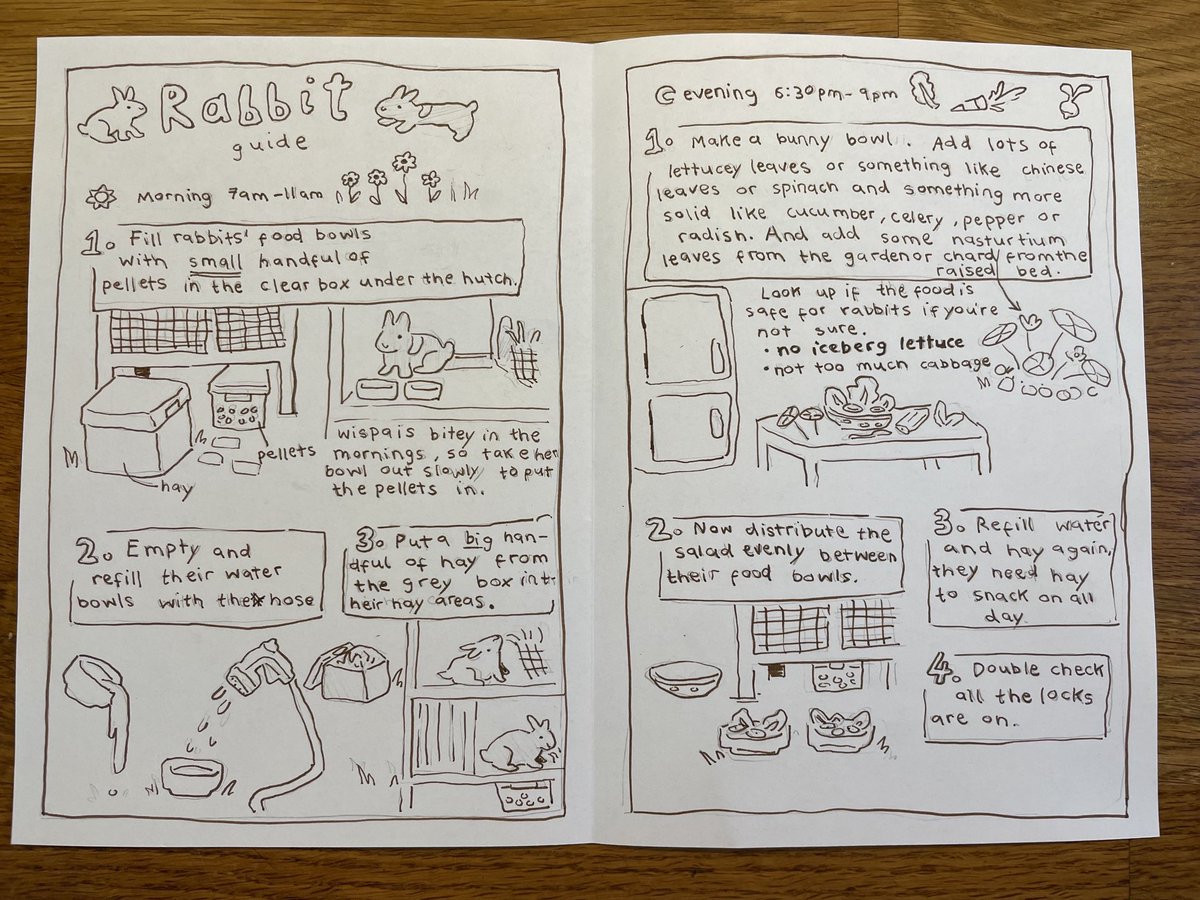 Rabbit
guide
Morning 7am-11am
1. Fill rabbits' food bowls
with small handful of
pellets in the clear box under the hutch.
pellets
hay
wispa is bitey in the
mornings, so take her
bowl out slowly to put
the pellets in.
2. Empty and
refill their water
bowls with the hose
3. Put a big han-
dful of hay from
the grey box in t
heir hay areas.
evening 6:30pm-9pm
1. Make a bunny bowl. Add lots of
lettucey leaves or something like chinese
leaves or spinach and something more
solid like cucumber, celery, pepper or
radish. And add some nasturtium
leaves from the garden or chard from the
raised bed.
Look up if the food is
safe for rabbits if you're
not sure.
• no iceberg lettuce
• not too much cabbage
2. Now distribute the
salad evenly between
their food bowls.
3. Refill water
and hay again,
they need hay
to snack on all
day
4. Double check
all the locks
are on.